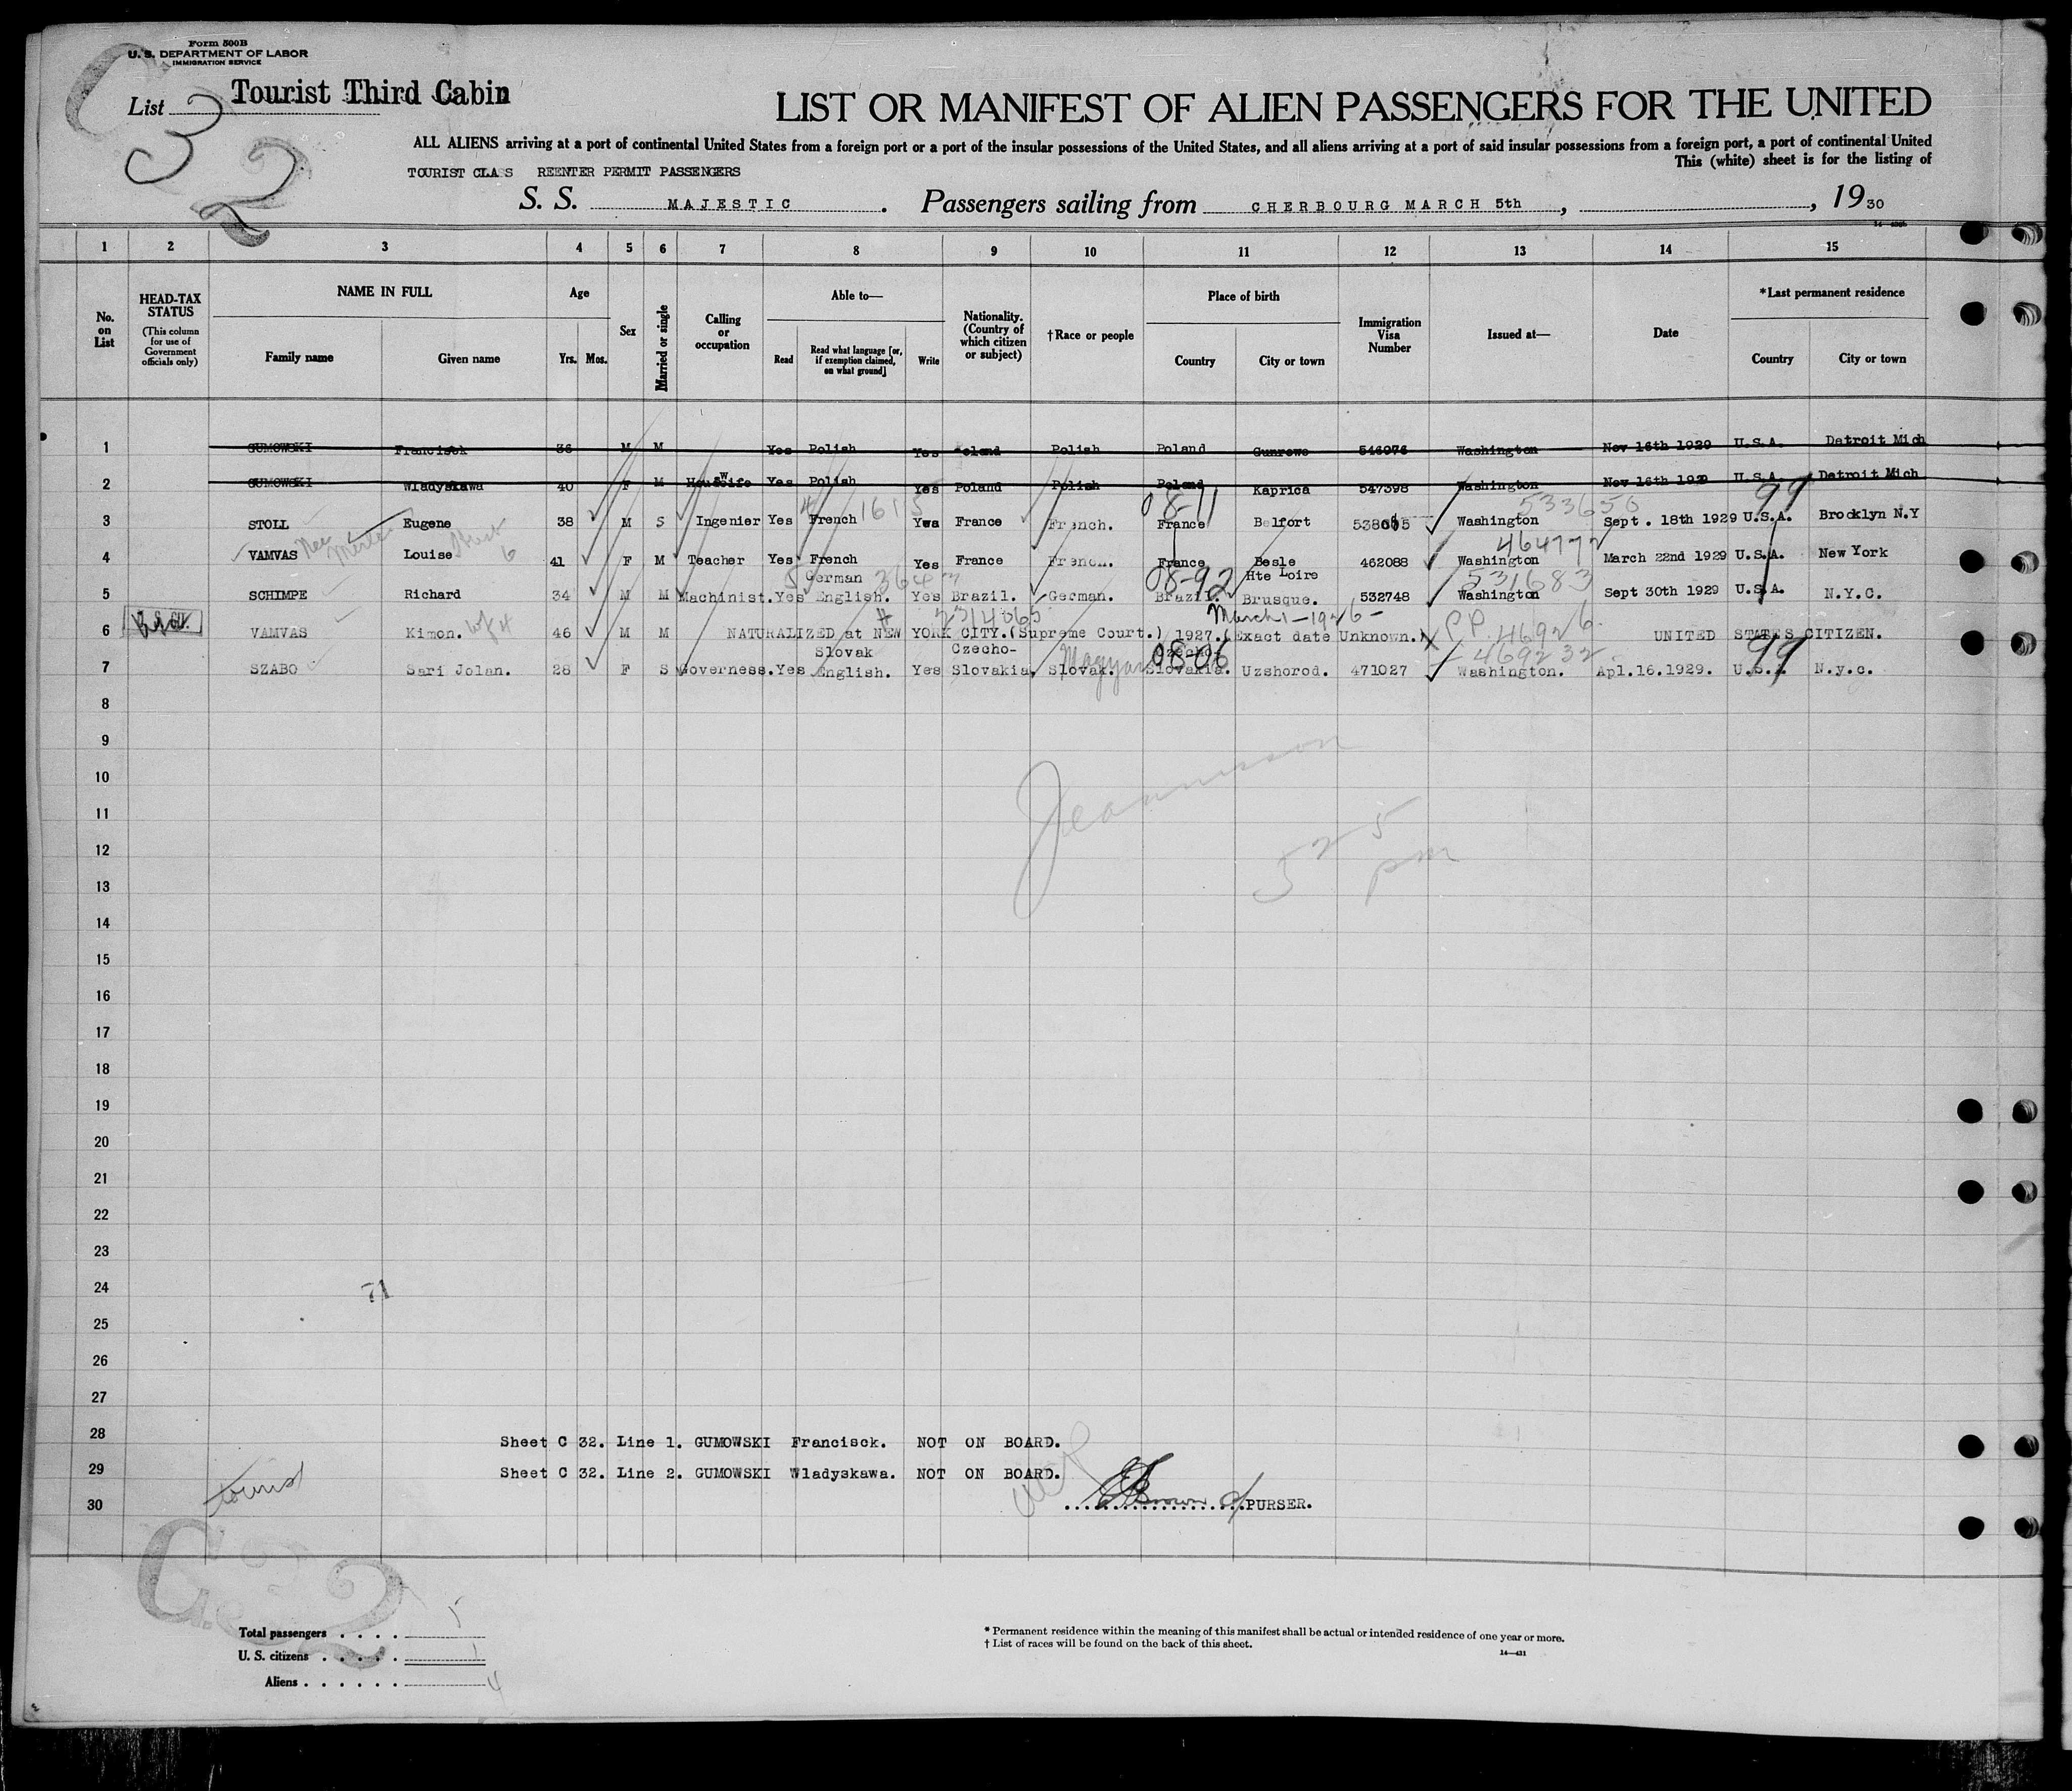 Form 500B
U. S. DEPARTMENT OF LABOR
IMMIGRATION SERVICE
List Tourist Third Cabin
C
32
LIST OR MANIFEST OF ALIEN PASSENGERS FOR THE UNITED
ALL ALIENS arriving at a port of continental United States from a foreign port or a port of the insular possessions of the United States, and all aliens arriving at a port of said insular possessions from a foreign port, a port of continental United
This (white) sheet is for the listing of
TOURIST CLASS REENTER PERMIT PASSENGERS
S. S. MAJESTIC. Passengers sailing from CHERBOURG MARCH 5th, , 1930
1 2 3 4 5 6 7 8 9 10 11 12 13 14 15
No. on List
HEAD-TAX STATUS (This column for use of Government officials only)
NAME IN FULL
Family name Given name
Age
Yrs. Mos.
Sex
Married or single
Calling or occupation
Able to—
Read Read what language [or, if exemption claimed, on what ground] Write
Nationality. (Country of which citizen or subject)
†Race or people
Place of birth
Country City or town
Immigration Visa Number
Issued at—
Date
*Last permanent residence
Country City or town
1 GUMOWSKI Francisck 36 M M Yes Polish Yes Poland Polish Poland Gunrowo 546076 Washington Nov 16th 1929 U.S.A. Detroit Mich
2 GUMOWSKI Wladyskawa 40 F M Housewife Yes Polish Yes Poland Polish Poland Kaprica 547398 Washington Nov 16th 1929 U.S.A. Detroit Mich
1615 08-71 533650 99
3 STOLL Eugene 38 M S Ingenier Yes French Ywa France French. France Belfort Washington Sept. 18th 1929 U.S.A. Brooklyn N.Y
6
4 VAMVAS Louise 41 F M Teacher Yes French Yes France French. France Besle Hte Loire 462088 Washington March 22nd 1929 U.S.A. New York
08-92 531683
5 SCHIMPE Richard 34 M M Machinist. Yes German English. Yes Brazil. German. Brazil. Brusque. 532748 Washington Sept 30th 1929 U.S.A. N.Y.C.
2314065 March 1-1926-
6 VAMVAS Kimon. wf 4 46 M M NATURALIZED at NEW YORK CITY.(Supreme Court.) 1927.(Exact date Unknown.) PP. 46926 UNITED STATES CITIZEN.
08-06 469232 99
7 SZABO Sari Jolan. 28 F S Governess. Yes Slovak English. Yes Czecho-Slovakia. Slovak. Magyar Czecho-Slovakia. Uzshorod. 471027 Washington. Apl.16.1929. U.S.A N.y.c.
8
9
10
11
12
525
pm
13
14
15
16
17
18
19
20
21
22
23
24 71
25
26
27
28 Sheet C 32. Line 1. GUMOWSKI Francisck. NOT ON BOARD.
29 Sheet C 32. Line 2. GUMOWSKI Wladyskawa. NOT ON BOARD.
30 tourist PURSER.
C32
Total passengers . . . . 5
U. S. citizens . . . . . 1
Aliens . . . . . . 4
* Permanent residence within the meaning of this manifest shall be actual or intended residence of one year or more.
† List of races will be found on the back of this sheet.
14—431